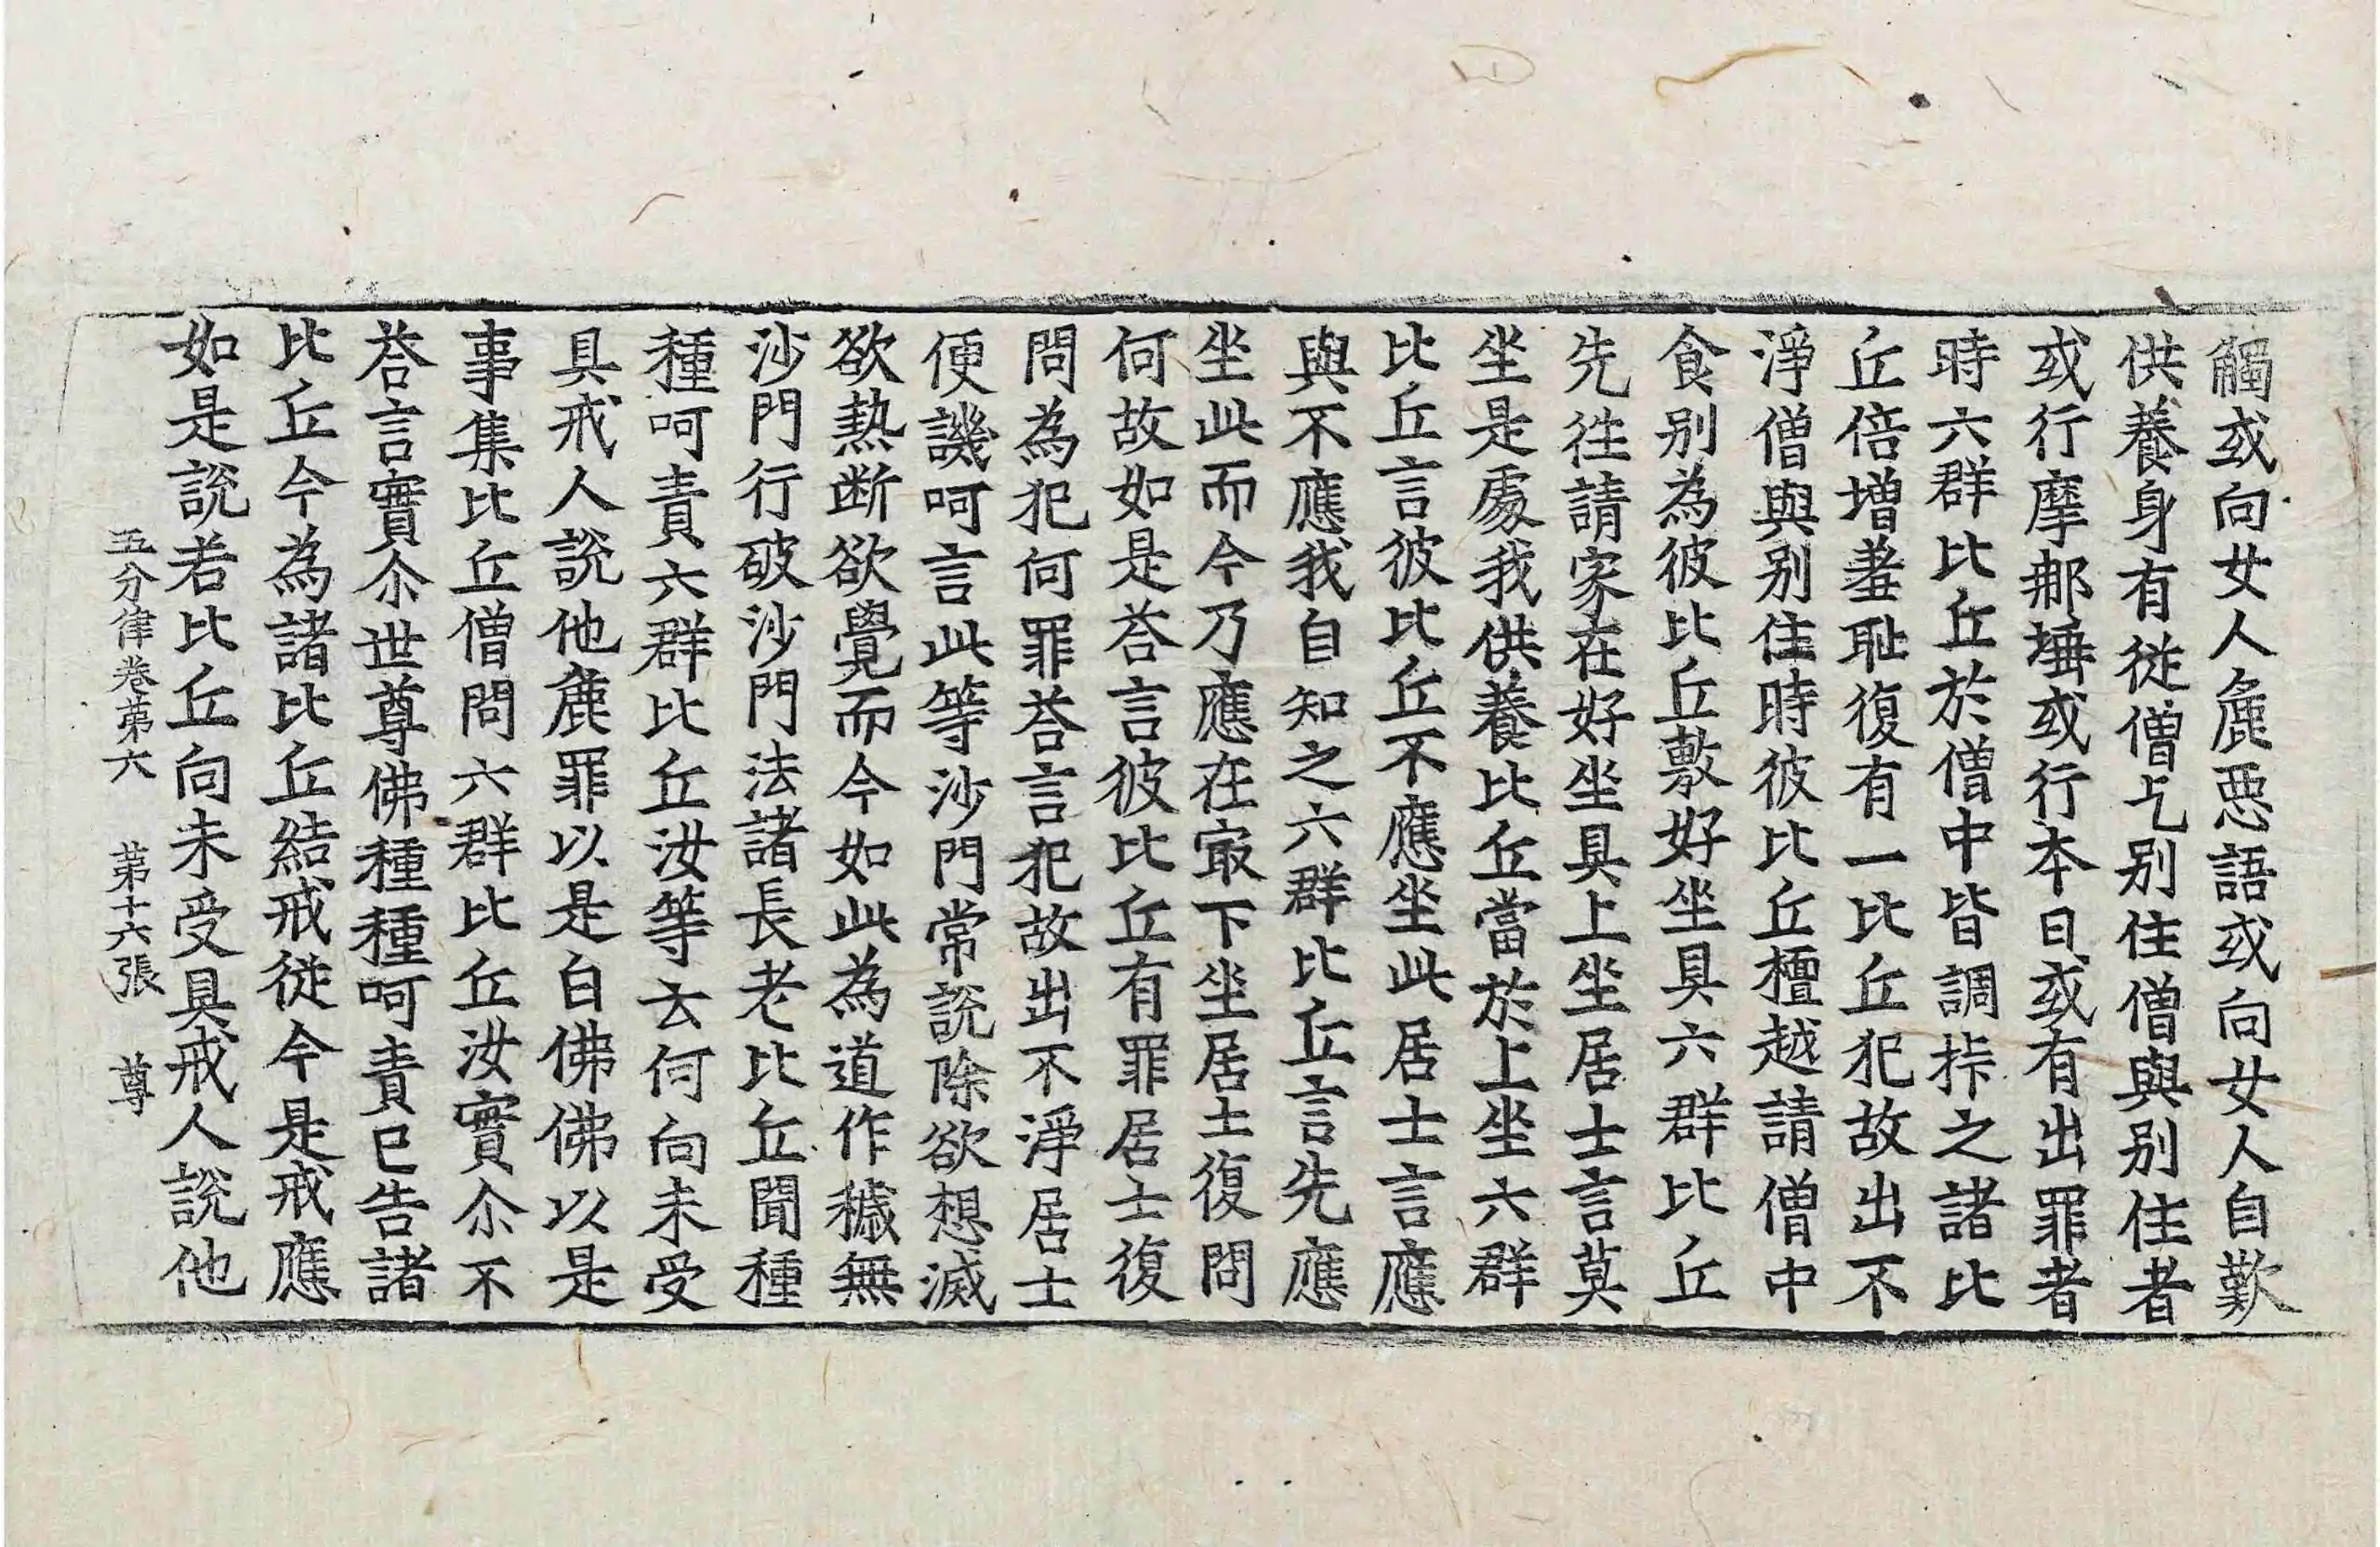 觸或向女人麁惡語或向女人自歎
供養身有從僧乞别住僧與别住者
或行摩那埵或行本日或有出罪者
時六群比丘於僧中皆調㧊之諸比
丘倍增羞耻復有一比丘犯故出不
淨僧與别住時彼比丘檀越請僧中
食别為彼比丘敷好坐具六群比丘
先徃請家在好坐具上坐居士言莫
坐是處我供養比丘當於上坐六群
比丘言彼比丘不應坐此居士言應
與不應我自知之六群比丘言先應
坐此而今乃應在㝡下坐居士復問
何故如是荅言彼比丘有罪居士復
問為犯何罪荅言犯故出不淨居士
便譏呵言此等沙門常說除欲想滅
欲熱断欲覺而今如此為道作穢無
沙門行破沙門法諸長老比丘聞種
種呵責六群比丘汝等云何向未受
具戒人說他麁罪以是白佛佛以是
事集比丘僧問六群比丘汝實尒不
荅言實尒世尊佛種種呵責已告諸
比丘今為諸比丘結戒從今是戒應
如是說若比丘向未受具戒人說他
五分律卷第六 第十六張 尊